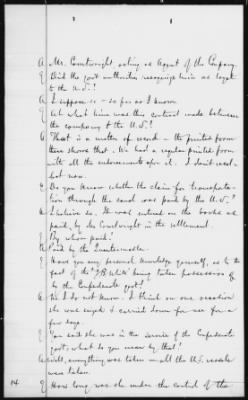 A Mr. Courtwright, acting as Agent of the Company.
Q Did the govt authorities recognize him as Agent
to the U.S.?
A I suppose so - so far as I know.
Q At what time was this contract made between
the company & the U.S.?
A That is a matter of record - the printed form
there shows that. We had a regular printed form
with all the endorsements upon it. I don't recol-
lect now.
Q Do you know whether the claim for transporta-
tion through the canal was paid by the U.S.?
A I believe so. It was entered on the books as
paid, by Mr Courtwright in the settlement.
Q By whom paid?
A Paid by the Quartermaster.
Q Have you any personal knowledge yourself, as to the
fact of the "J.B. White" being taken possession of
by the Confederate govt?
A No I do not know. I think on one occasion
she was seized & carried down for use for a
few days.
Q You said she was in the service of the Confederate
govt; what do you mean by that?
A Well, everything was taken - all the U.S. vessels
were taken.
Q How long was she under the control of the